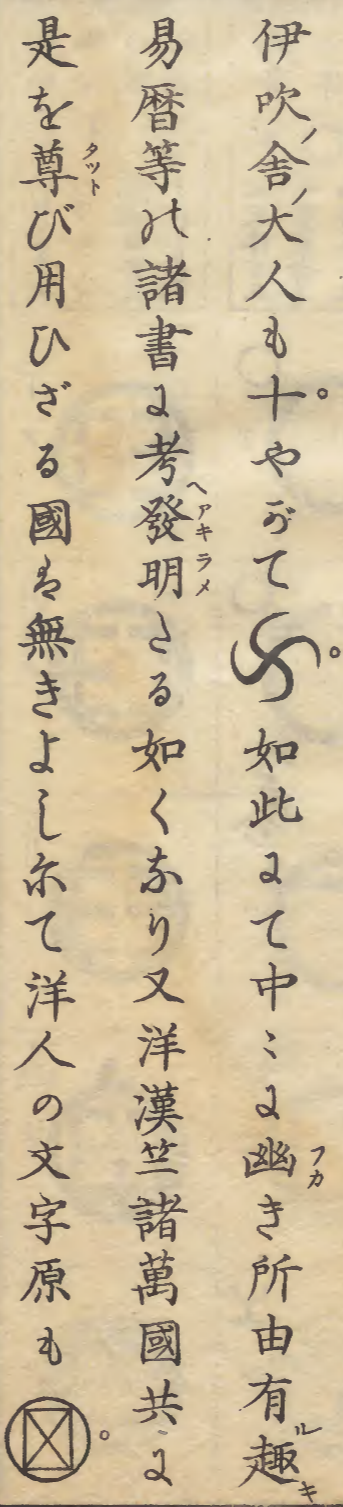 伊吹ノ舎ノ大人も十。やがて卍。如此にて中〻に幽フカき所由有ル趣キ
易暦等の諸書に考ヘ發明アキラメたる如くなり又洋漢竺諸萬國共に
是を尊タットび用ひざる國は無きよしにて洋人の文字原も。